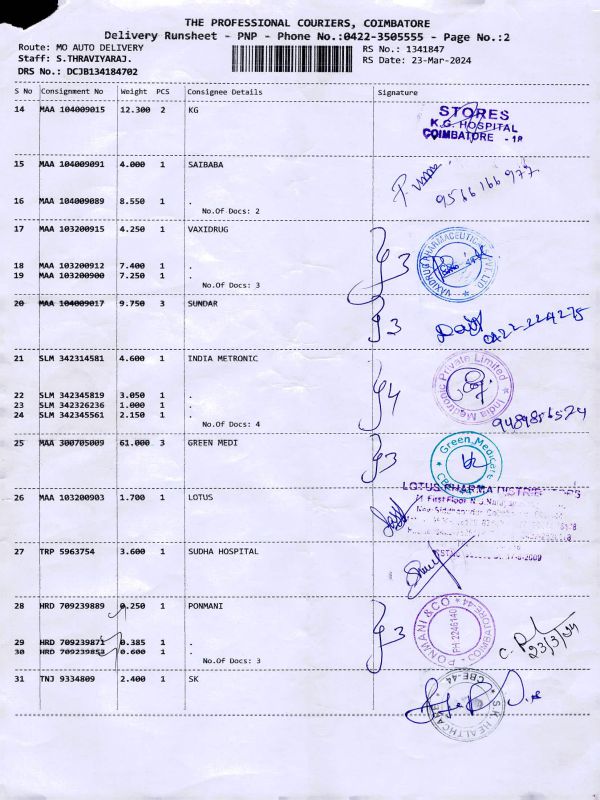 THE PROFESSIONAL COURIERS, COIMBATORE
Delivery Runsheet - PNP - Phone No.:0422-3505555 - Page No.:2
Route: MO AUTO DELIVERY RS No.: 1341847
Staff: S.THRAVIYARAJ. RS Date: 23-Mar-2024
DRS No.: DCJB134184702
S No Consignment No Weight PCS Consignee Details Signature
14 MAA 104009015 12.300 2 KG
STORES
K.G. HOSPITAL
COIMBATORE - 18
15 MAA 104009091 4.000 1 SAIBABA
9566166977
16 MAA 104009089 8.550 1 .
No.Of Docs: 2
17 MAA 103200915 4.250 1 VAXIDRUG
VAXIDRUG PHARMACEUTICALS PVT LTD
3
18 MAA 103200912 7.400 1 .
19 MAA 103200900 7.250 1 .
No.Of Docs: 3
20 MAA 104009017 9.750 3 SUNDAR
3
0422-224275
21 SLM 342314581 4.600 1 INDIA METRONIC
India Medtronic Private Limited
4
22 SLM 342345819 3.050 1 .
23 SLM 342326236 1.000 1 .
24 SLM 342345561 2.150 1 .
No.Of Docs: 4
9489856524
25 MAA 300705009 61.000 3 GREEN MEDI
3
Green Medicare
26 MAA 103200903 1.700 1 LOTUS
LOTUS PHARMA DISTRIBUTORS
27 TRP 5963754 3.600 1 SUDHA HOSPITAL
28 HRD 709239889 0.250 1 PONMANI
PONMANI & CO
COIMBATORE-44
PH:2246140
3
23/3/24
29 HRD 709239871 0.385 1 .
30 HRD 709239853 0.600 1 .
No.Of Docs: 3
31 TNJ 9334809 2.400 1 SK
S.K. HEALTHCARE
CBE-44